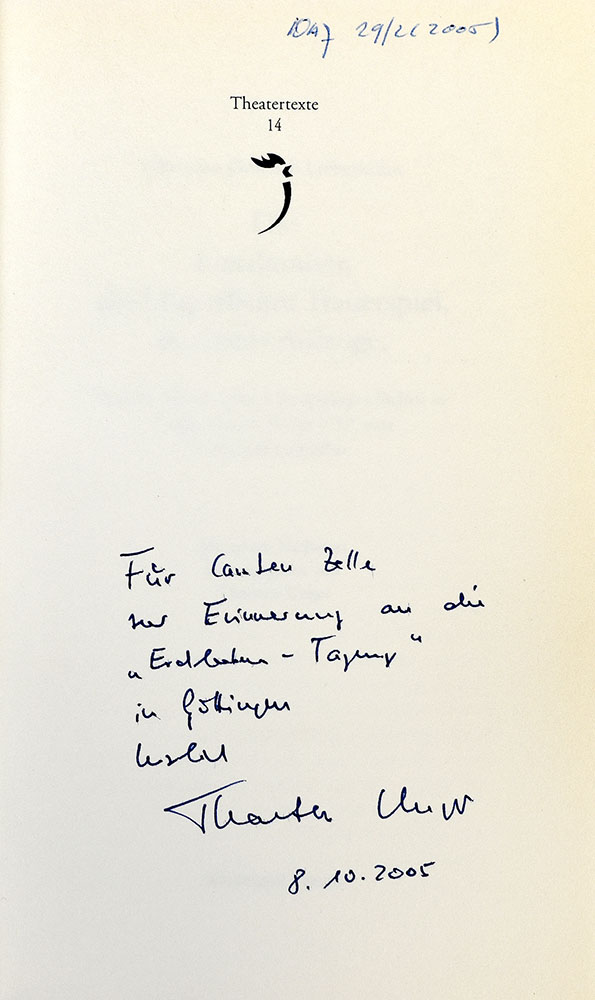 DAJ 29/2 (2005)
Theatertexte
14
Für Carsten Zelle
zur Erinnerung an die
„Erdbeben-Tagung“
in Göttingen
herzlich
Thorsten Unger
8.10.2005